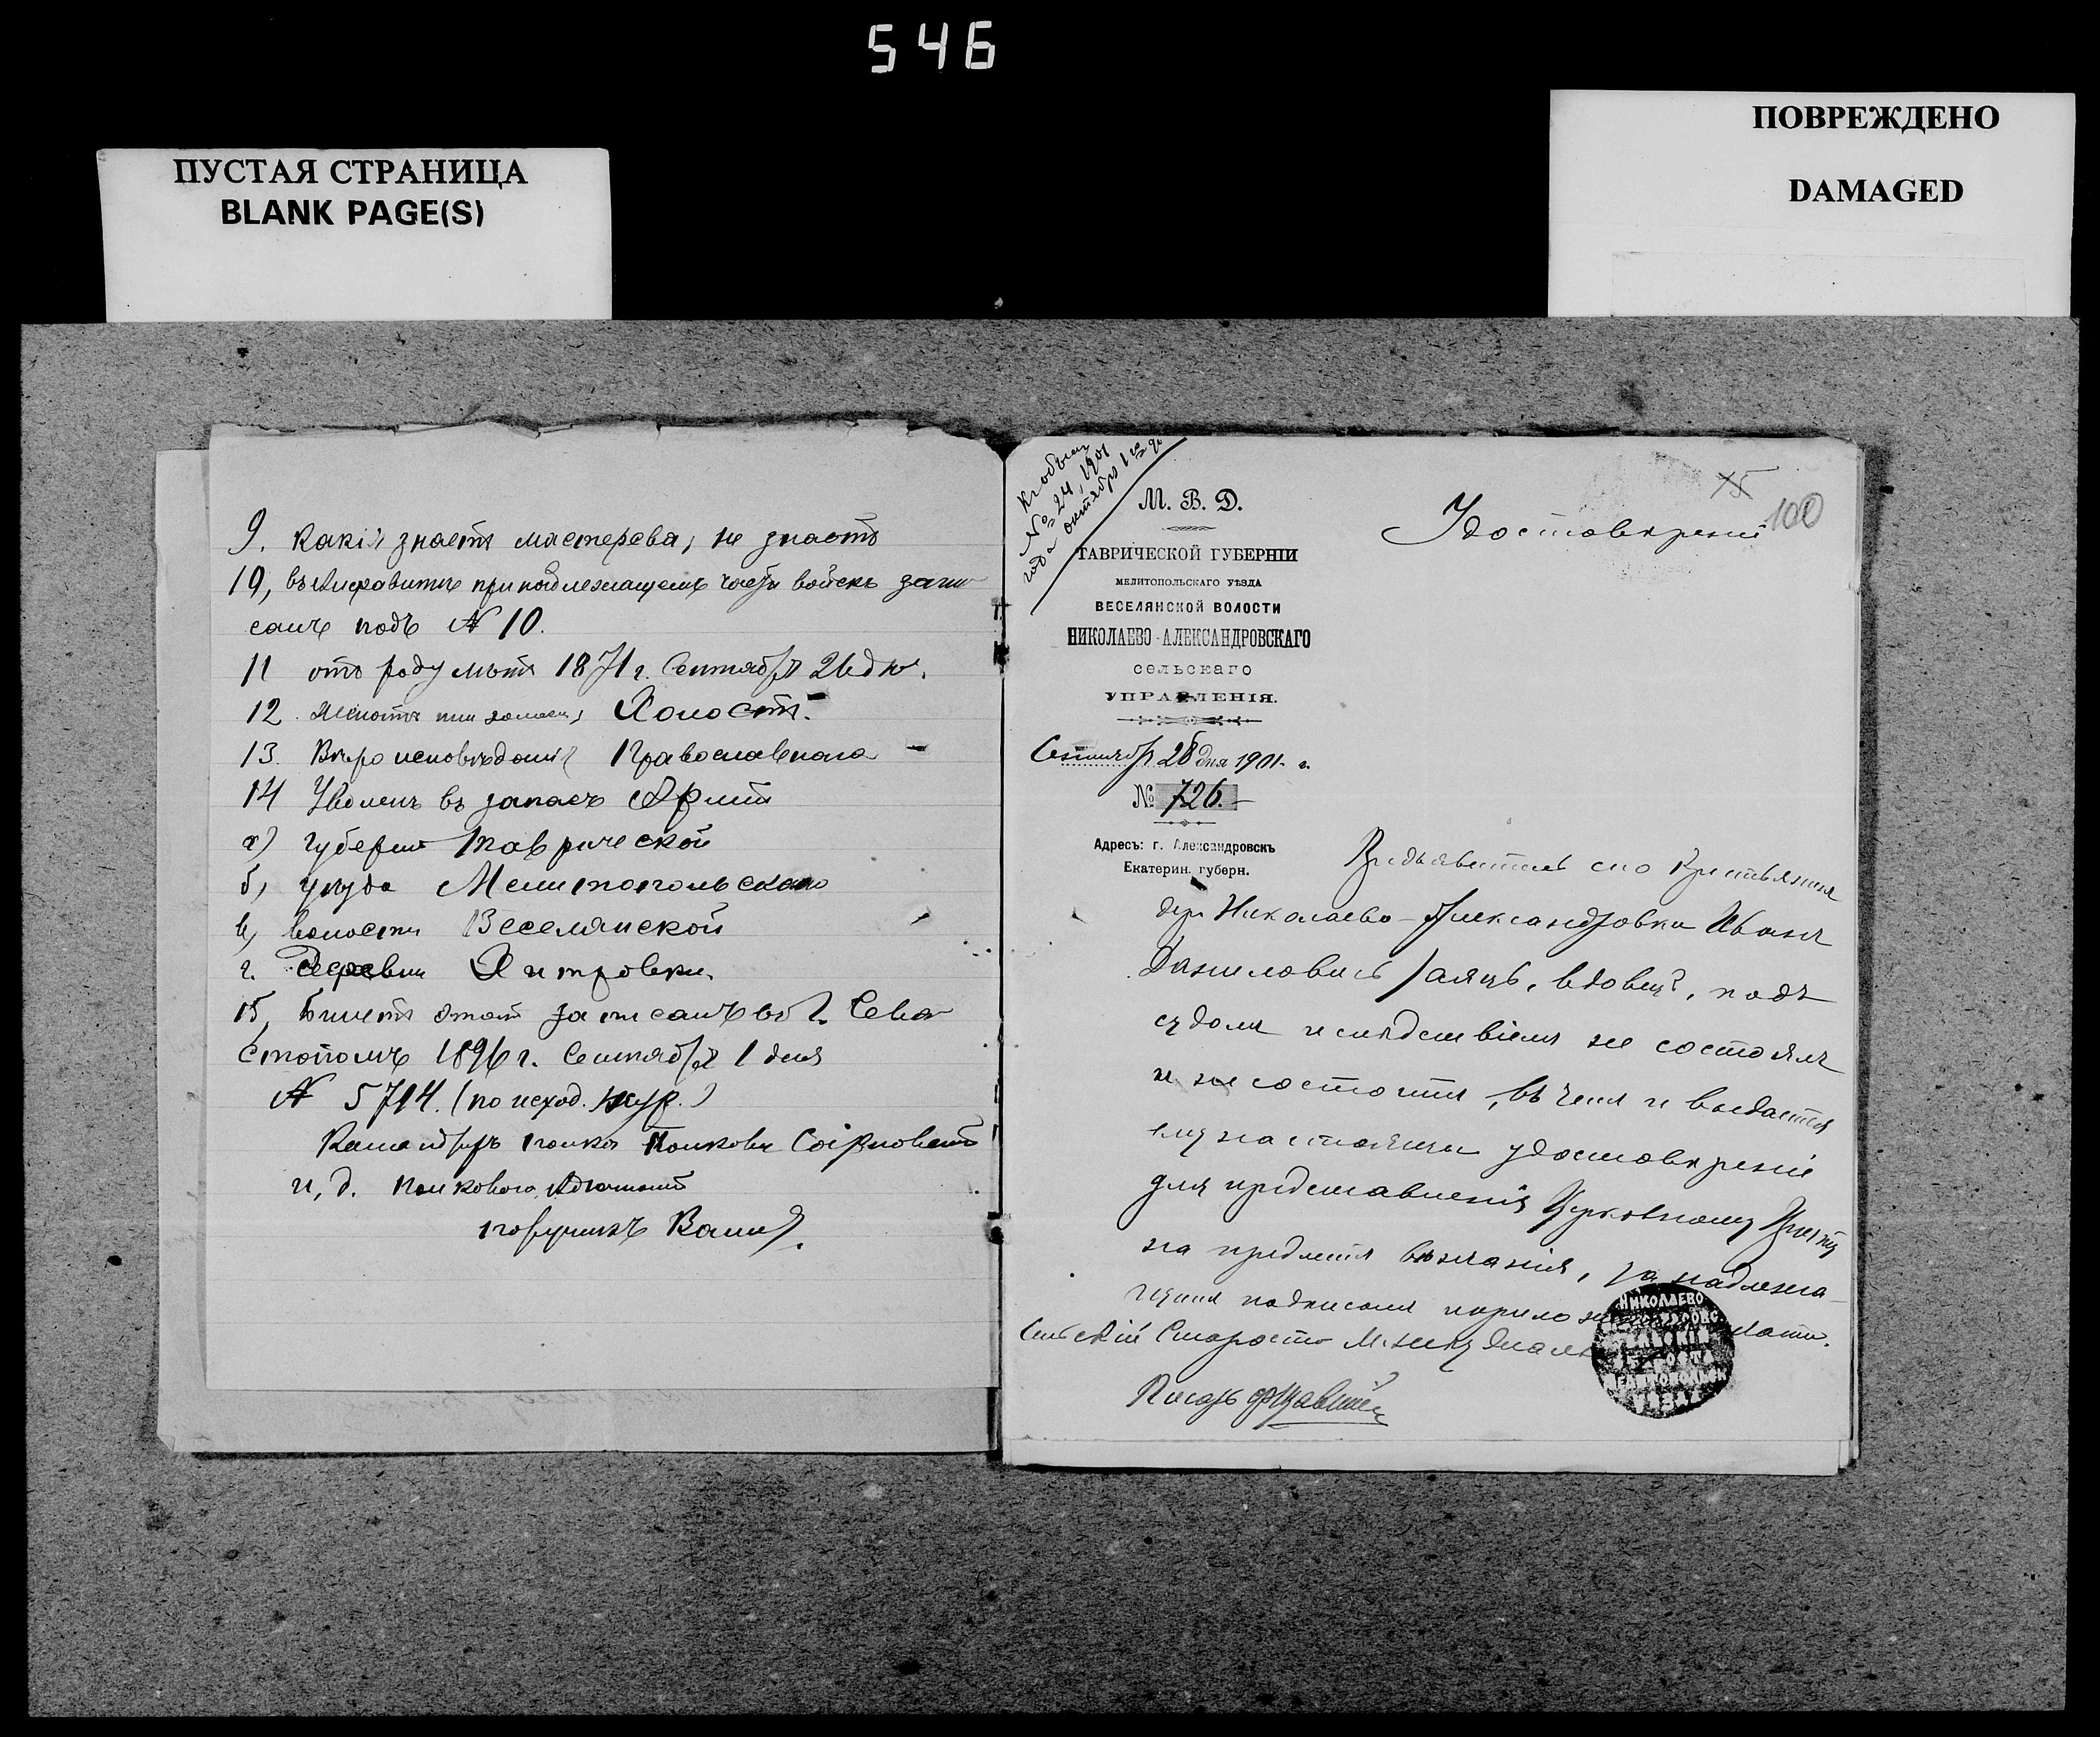 546
ПУСТАЯ СТРАНИЦА
BLANK PAGE(S)
ПОВРЕЖДЕНО
DAMAGED
9. Какія знаетъ мастерсва, не знаетъ
10, въ Алфавитѣ принадлежащемъ части войскъ запи
санъ подъ № 10.
11 отъ роду лѣтъ 1871 г. Сентября 26 дн.
12. Женатъ или холостъ, Холостъ.
13. Вѣроисповѣданія Православнаго
14 Уволенъ въ запасъ Арміи
а) губерніи Таврической
б, уѣзда Мелитопольскаго
в, волости Веселянской
г. Деревни
15, Билетъ этотъ записанъ въ г. Сева
стополѣ 1896 г. Сентября 1 дня
№ 5794. (по исход. жур.)
Командиръ полка Полковн
и, д. полковаго Адъютанта
поручикъ
75
100
къ обыску
№ 24, 1901
года октября 1го дн
М. В. Д.
ТАВРИЧЕСКОЙ ГУБЕРНІИ
МЕЛИТОПОЛЬСКАГО УѢЗДА
ВЕСЕЛЯНСКОЙ ВОЛОСТИ
НИКОЛАЕВО-АЛЕКСАНДРОВСКАГО
СЕЛЬСКАГО
УПРАВЛЕНІЯ.
Сентября 28 дня 1901 г.
№ 726.
Адресъ: г. Александровскъ
Екатерин. губерн.
Удостовѣреніе
Предъявитель сего Крестьянинъ
дер. Николаево-Александровки Иванъ
Даниловичъ Заяцъ, вдовецъ, подъ
судомъ и слѣдствіемъ не состоялъ
и не состоитъ, въ чемъ и выдается
ему настоящее удостовѣреніе
для представленія Церковному Причту
на предметъ вѣнчанія, за надлежа
щимъ подписомъ и приложен печати.
Сельскій Староста
Писарь
НИКОЛАЕВО
СЕЛЬСКІЙ
СТАРОСТА
МЕЛИТОПОЛЬСК
УѢЗДА